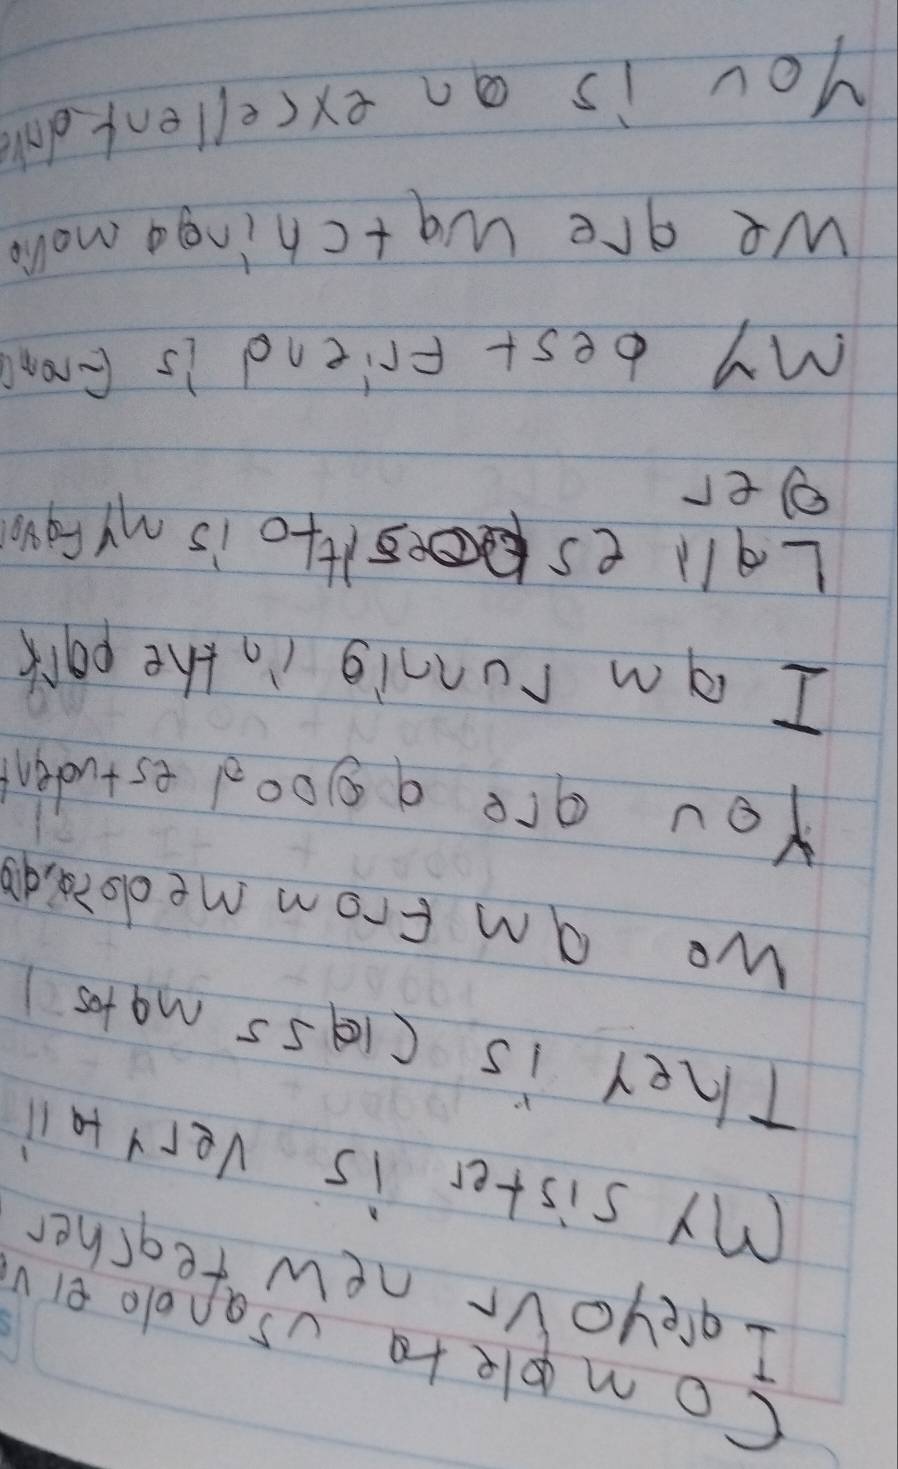 Completa usando el ve
I areyour new teacher
My sister is very tall
They is class mates
Wo am From Me
You are a good estudent
I am runnig in the park
Lall es to is my favor
Ber
My best Friend is From
We are watching a movie
You is an excellent drive